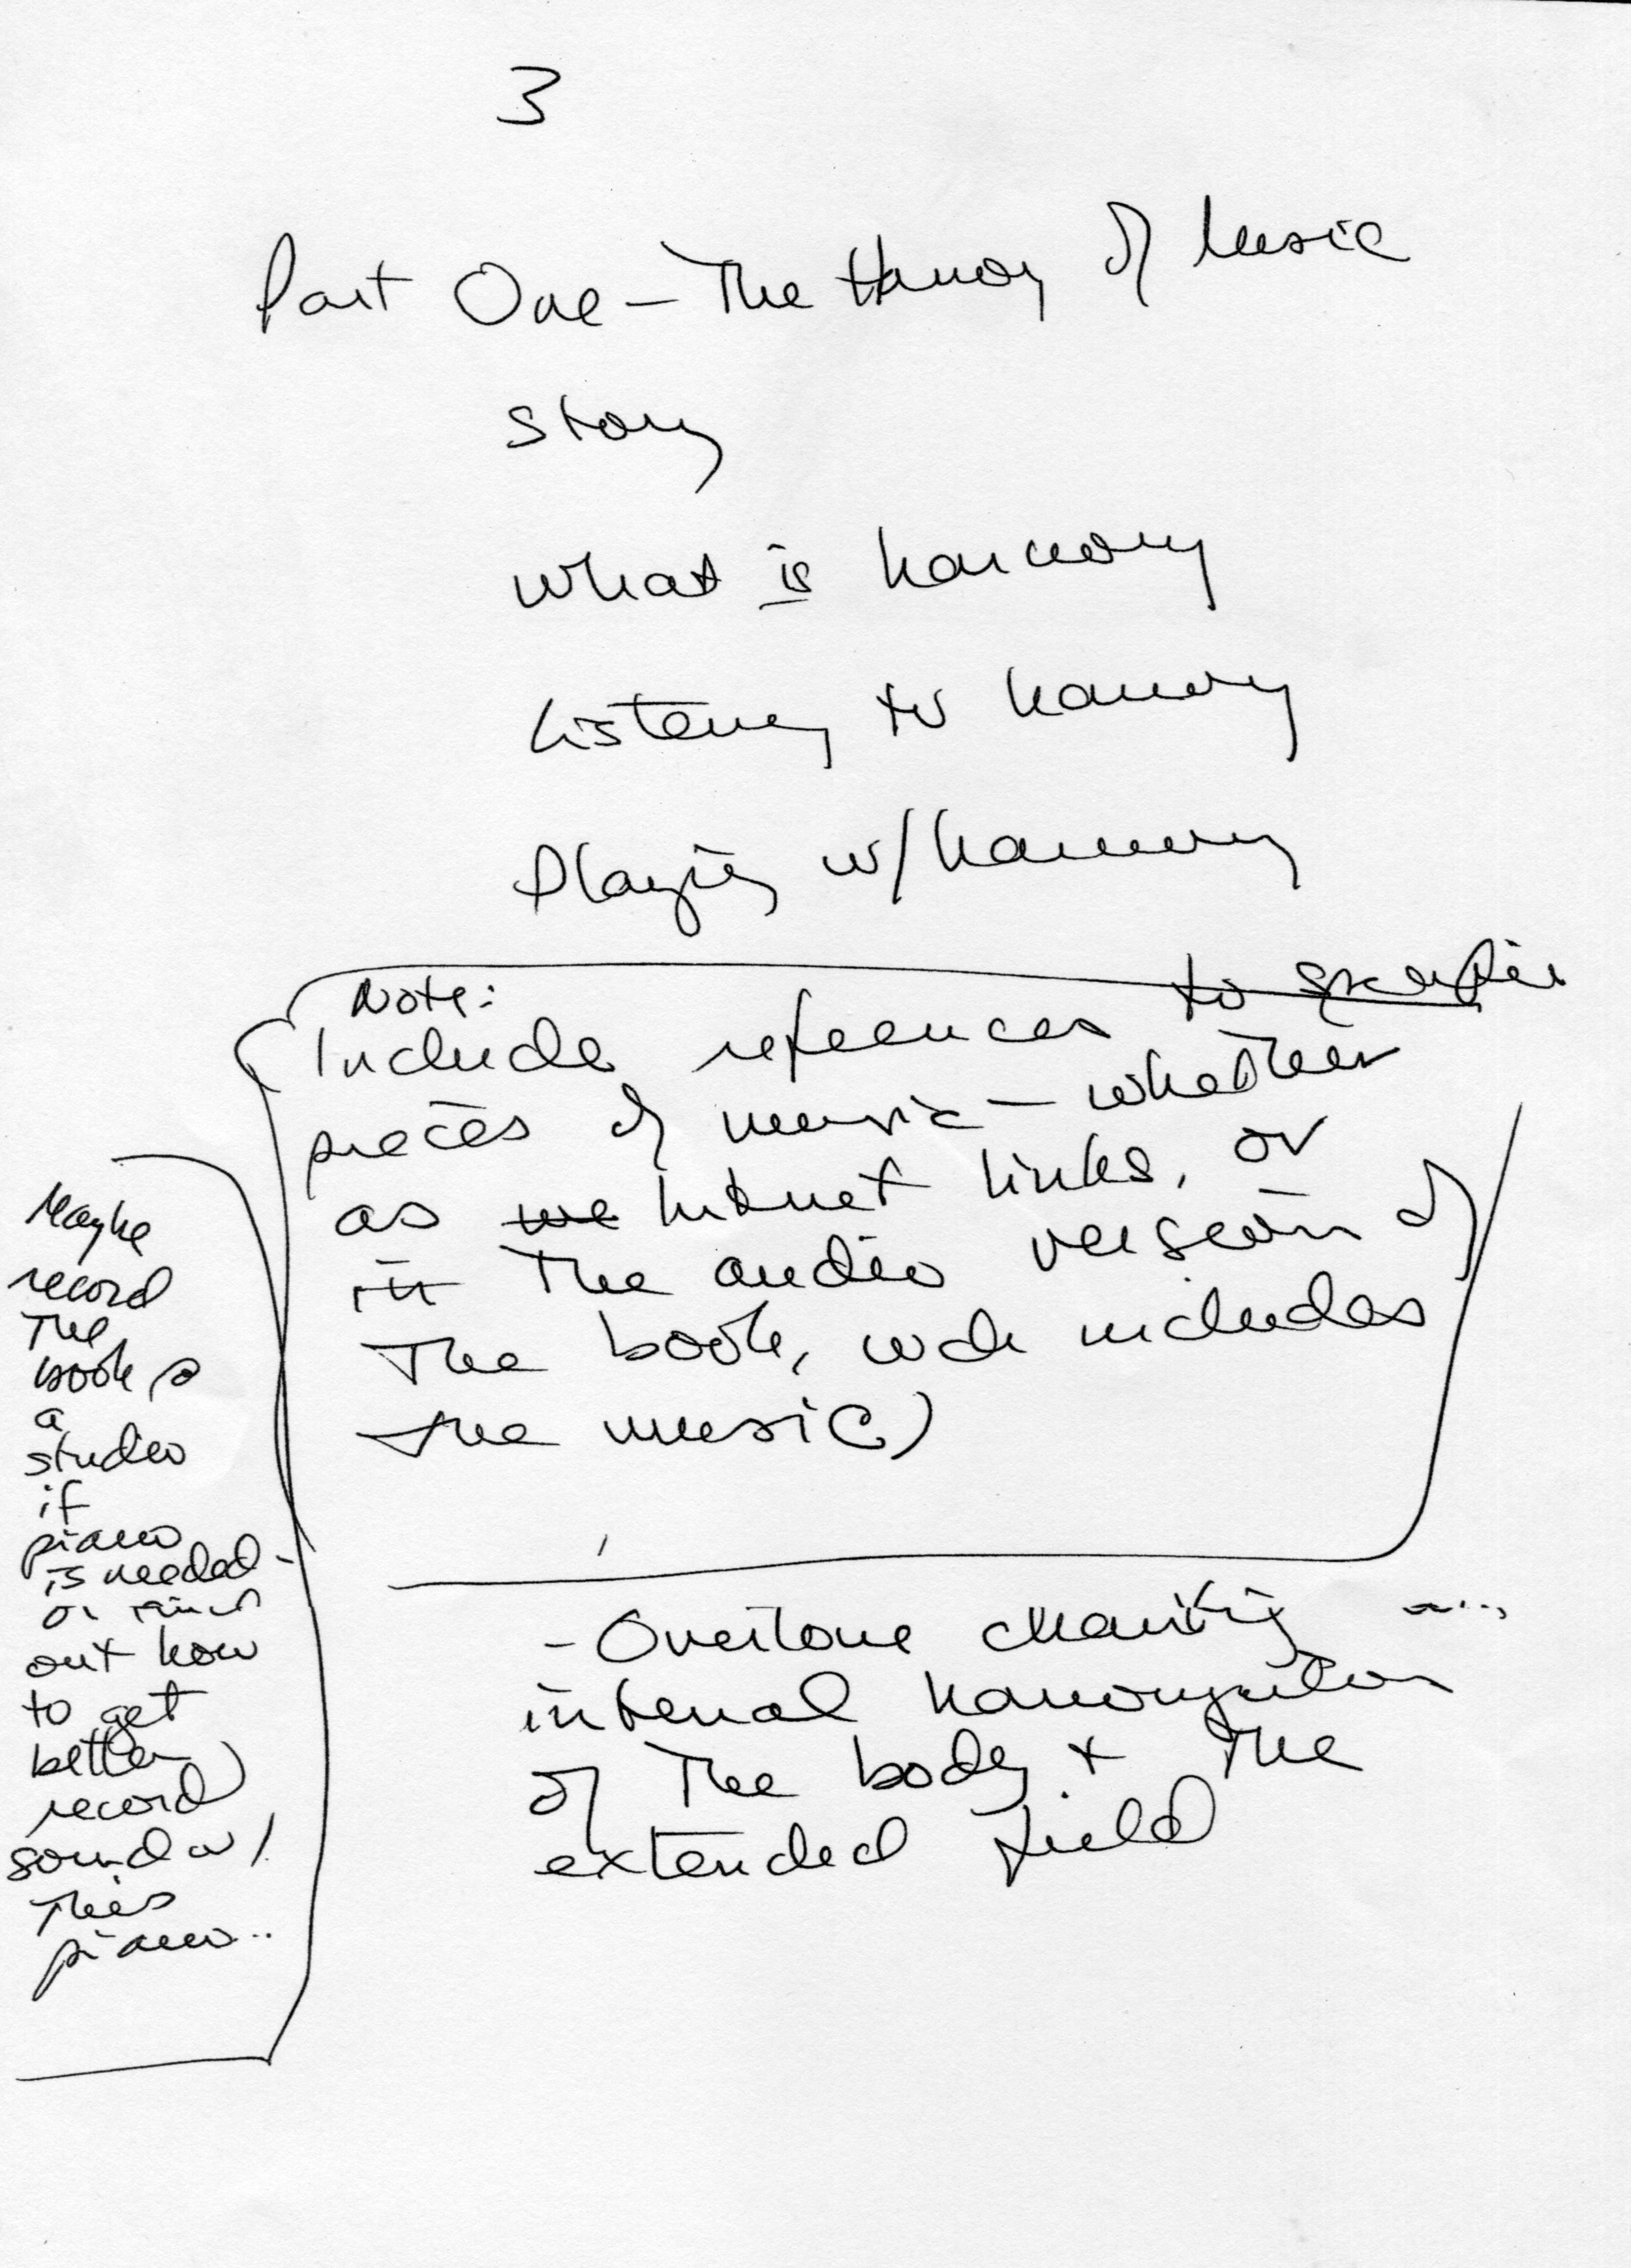 3
Part One – The Harmony of Music
Story
What is harmony
Listening to harmony
Playing w/ harmony
Note:
Include references to specific
pieces of music – whether
as internet links, or
in the audio version of
the book, wch includes
the music)
Maybe
record
the
book @
a
studio
if
piano
is needed –
or
out how
to get
better
record
sound w/
this
piano..
- Overtone chanting
internal harmonization
of the body + the
extended field